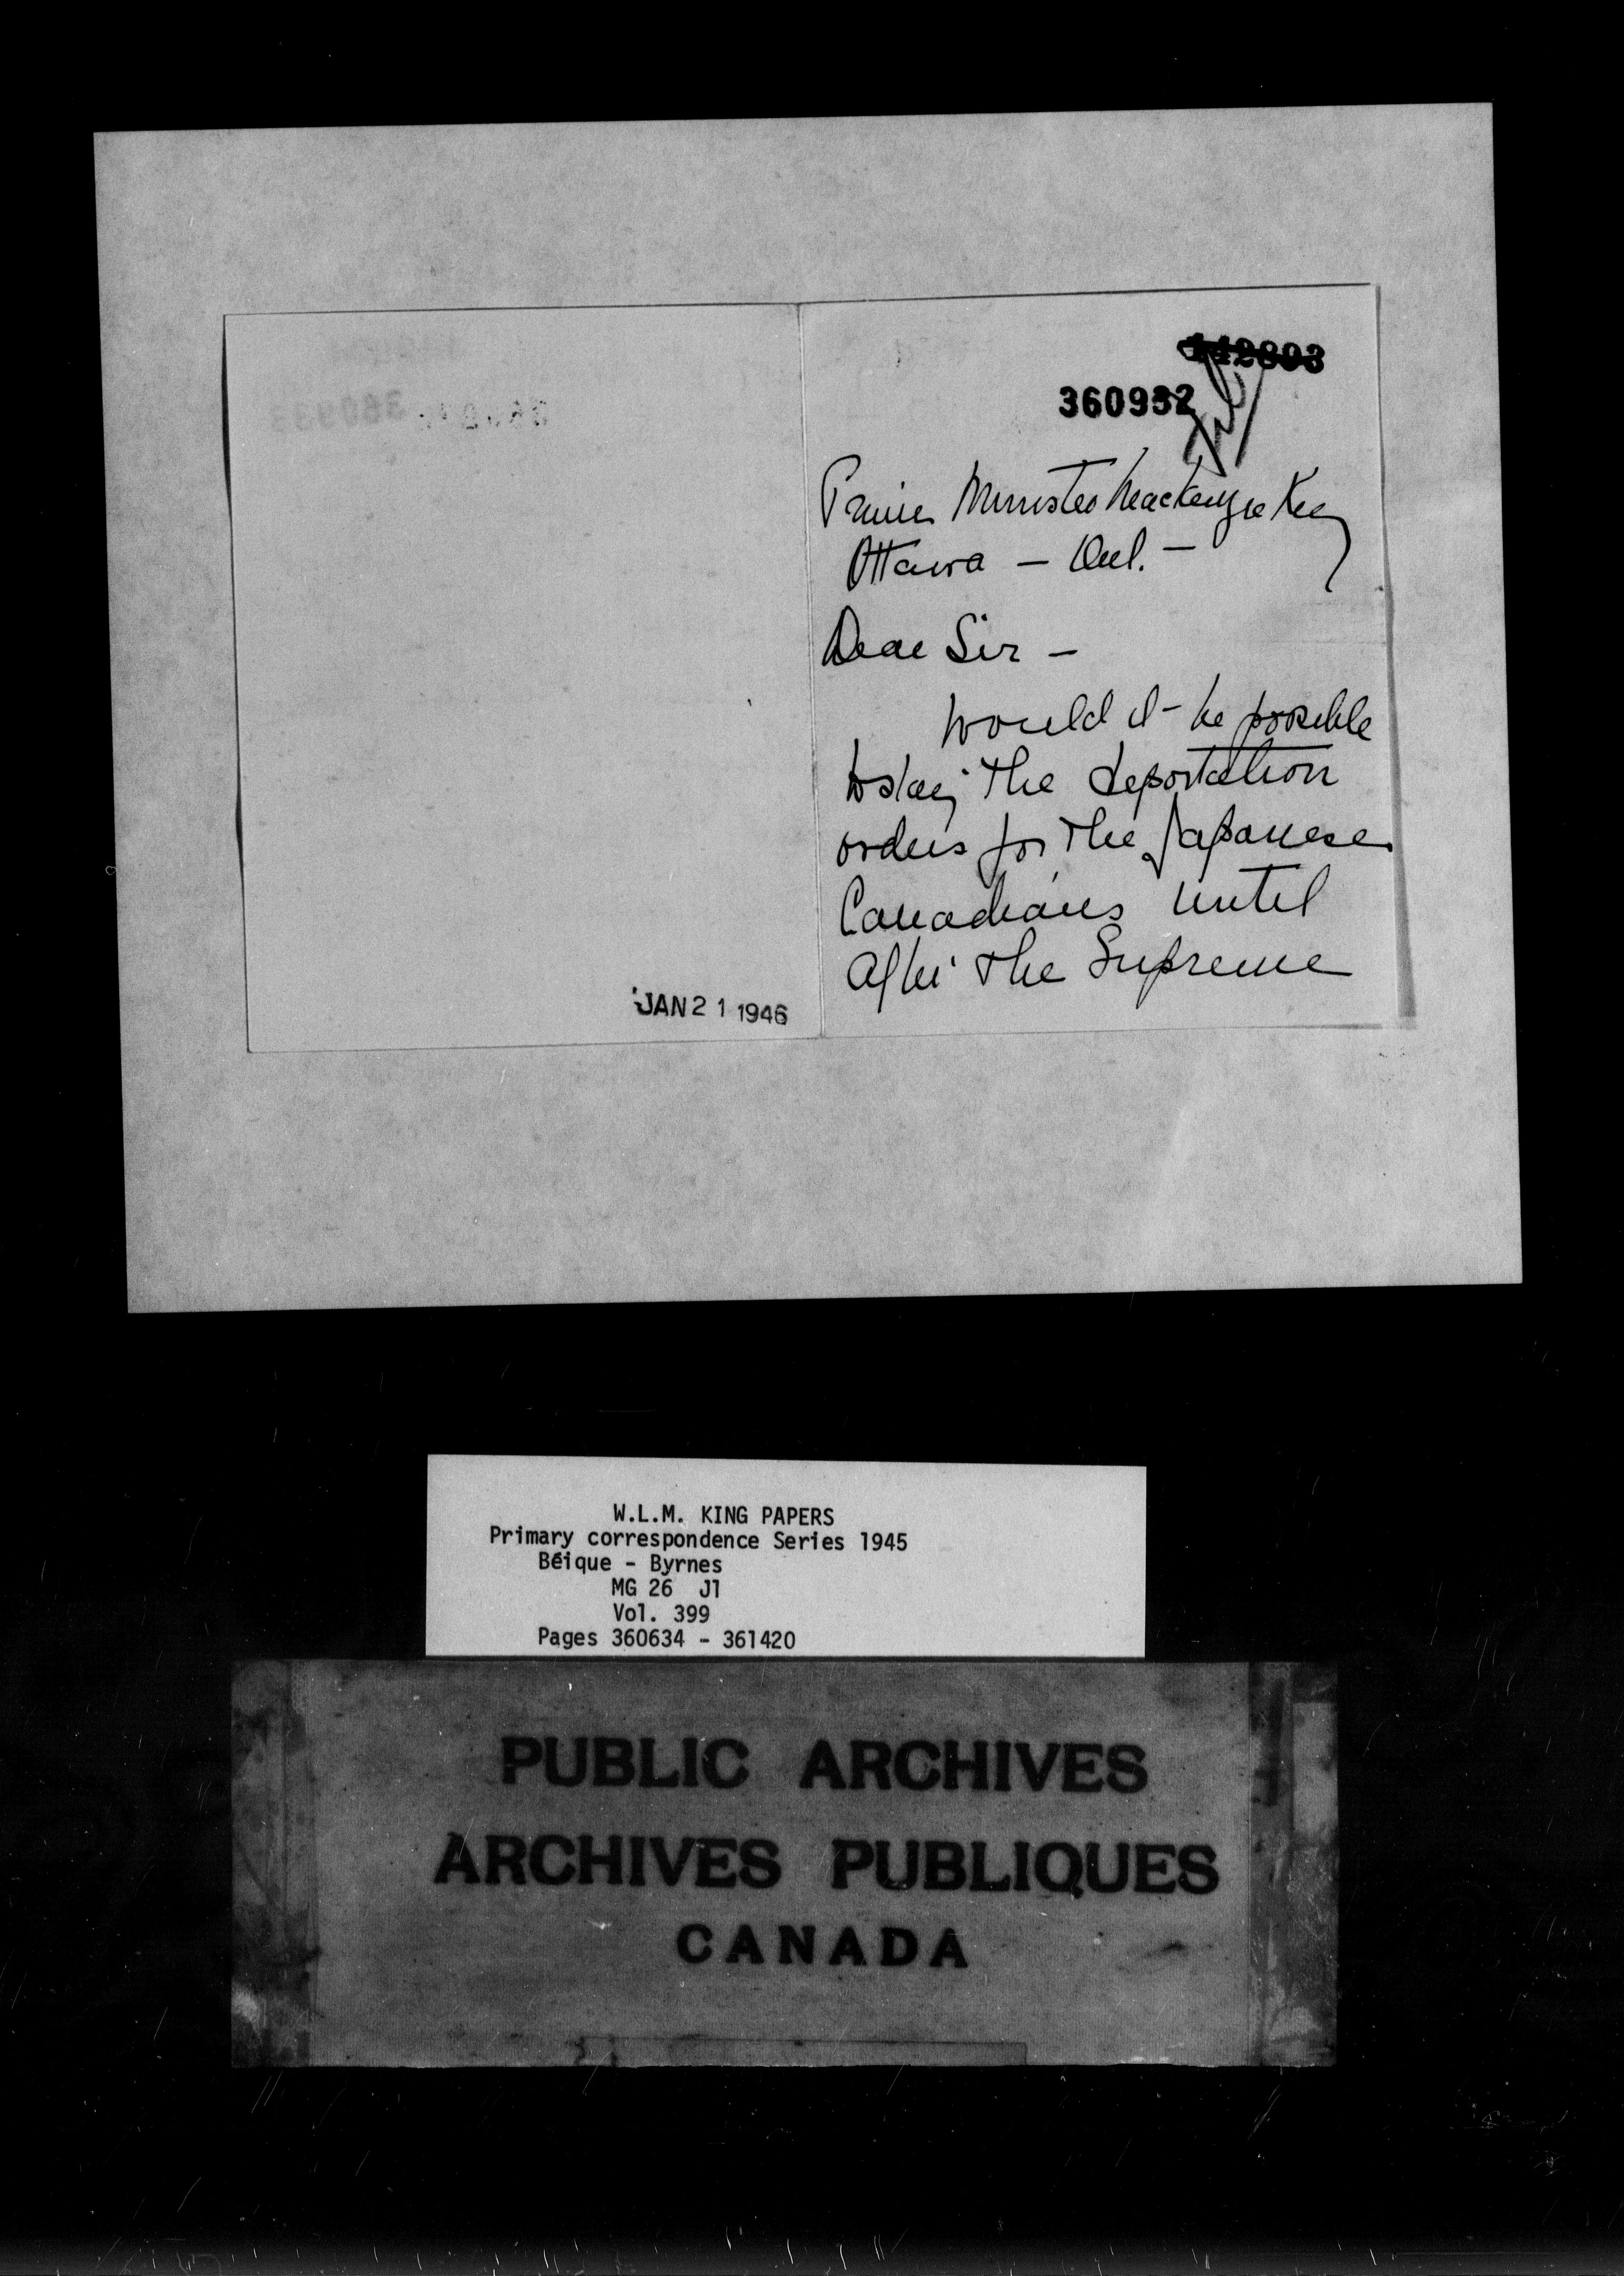 142893
360932
Prime Minister Mackenzie King
Ottawa — Ont. —
Dear Sir —
Would it be possible
to stay the deportation
orders for the Japanese
Canadians until
after the Supreme
JAN 21 1946
W.L.M. KING PAPERS
Primary correspondence Series 1945
Béique - Byrnes
MG 26 J1
Vol. 399
Pages 360634 - 361420
PUBLIC ARCHIVES
ARCHIVES PUBLIQUES
CANADA